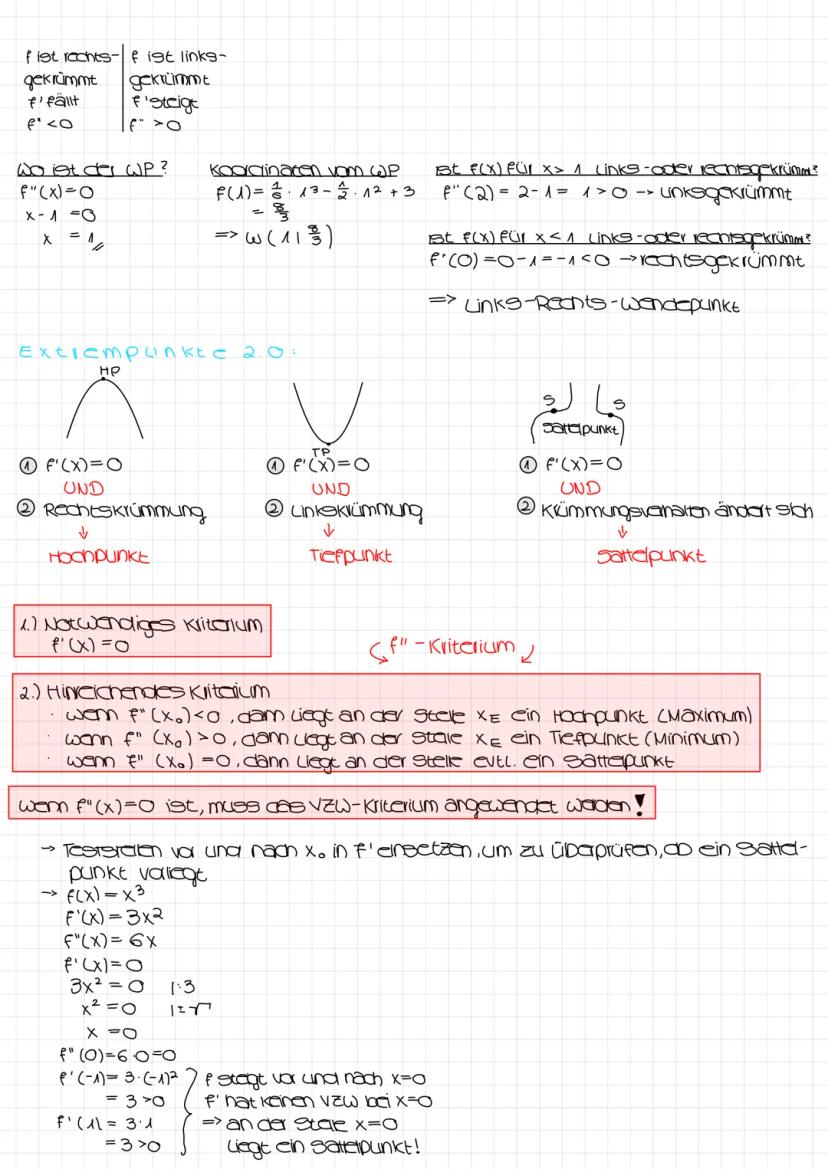 f ist rechts-
gekrümmt
f' fällt
f" <0
f ist links-
gekrümmt
f' steigt
f" >0
Wo ist der WP?
f"(x)=0
x-1 =0
x = 1
Koordinaten vom WP
f(1)= 1/6 · 1³ - 1/2 · 1² + 3
= 8/3
=> W(1 | 8/3)
Ist f(x) für x> 1 Links-oder rechtsgekrümmt?
f"(2) = 2-1= 1>0 -> Linksgekrümmt
Ist f(x) für x<1 Links-oder rechtsgekrümmt?
f"(0) =0-1=-1<0 → rechtsgekrümmt
=> Links-Rechts-Wendepunkt
Extrempunkte 2.0:
HP
① f'(x)=0
UND
② Rechtskrümmung
↓
Hochpunkt
TP
① f'(x)=0
UND
② Linkskrümmung
↓
Tiefpunkt
S S
Sattelpunkt
① f'(x)=0
UND
② Krümmungsverhalten ändert sich
↓
Sattelpunkt
1.) Notwendiges Kriterium
f'(x) =0
f" - Kriterium
2.) Hinreichendes Kriterium
· wenn f" (x₀)<0, dann liegt an der Stelle x_E ein Hochpunkt (Maximum)
· wenn f" (x₀) >0, dann liegt an der Stelle x_E ein Tiefpunkt (Minimum)
· wenn f" (x₀) =0, dann liegt an der Stelle evtl. ein Sattelpunkt
Wenn f"(x)=0 ist, muss das VZW-Kriterium angewendet werden!
→ Teststellen vor und nach x₀ in f' einsetzen, um zu überprüfen, ob ein Sattel-
punkt vorliegt
→ f(x) = x³
f'(x) = 3x²
f"(x)= 6x
f'(x)=0
3x² = 0 |:3
x² =0 |±√
x =0
f" (0)=6·0=0
f'(-1)= 3·(-1)²
= 3>0
f'(1) = 3·1
=3>0
f steigt vor und nach x=0
f' hat keinen VZW bei x=0
=> an der Stelle x=0
liegt ein Sattelpunkt!